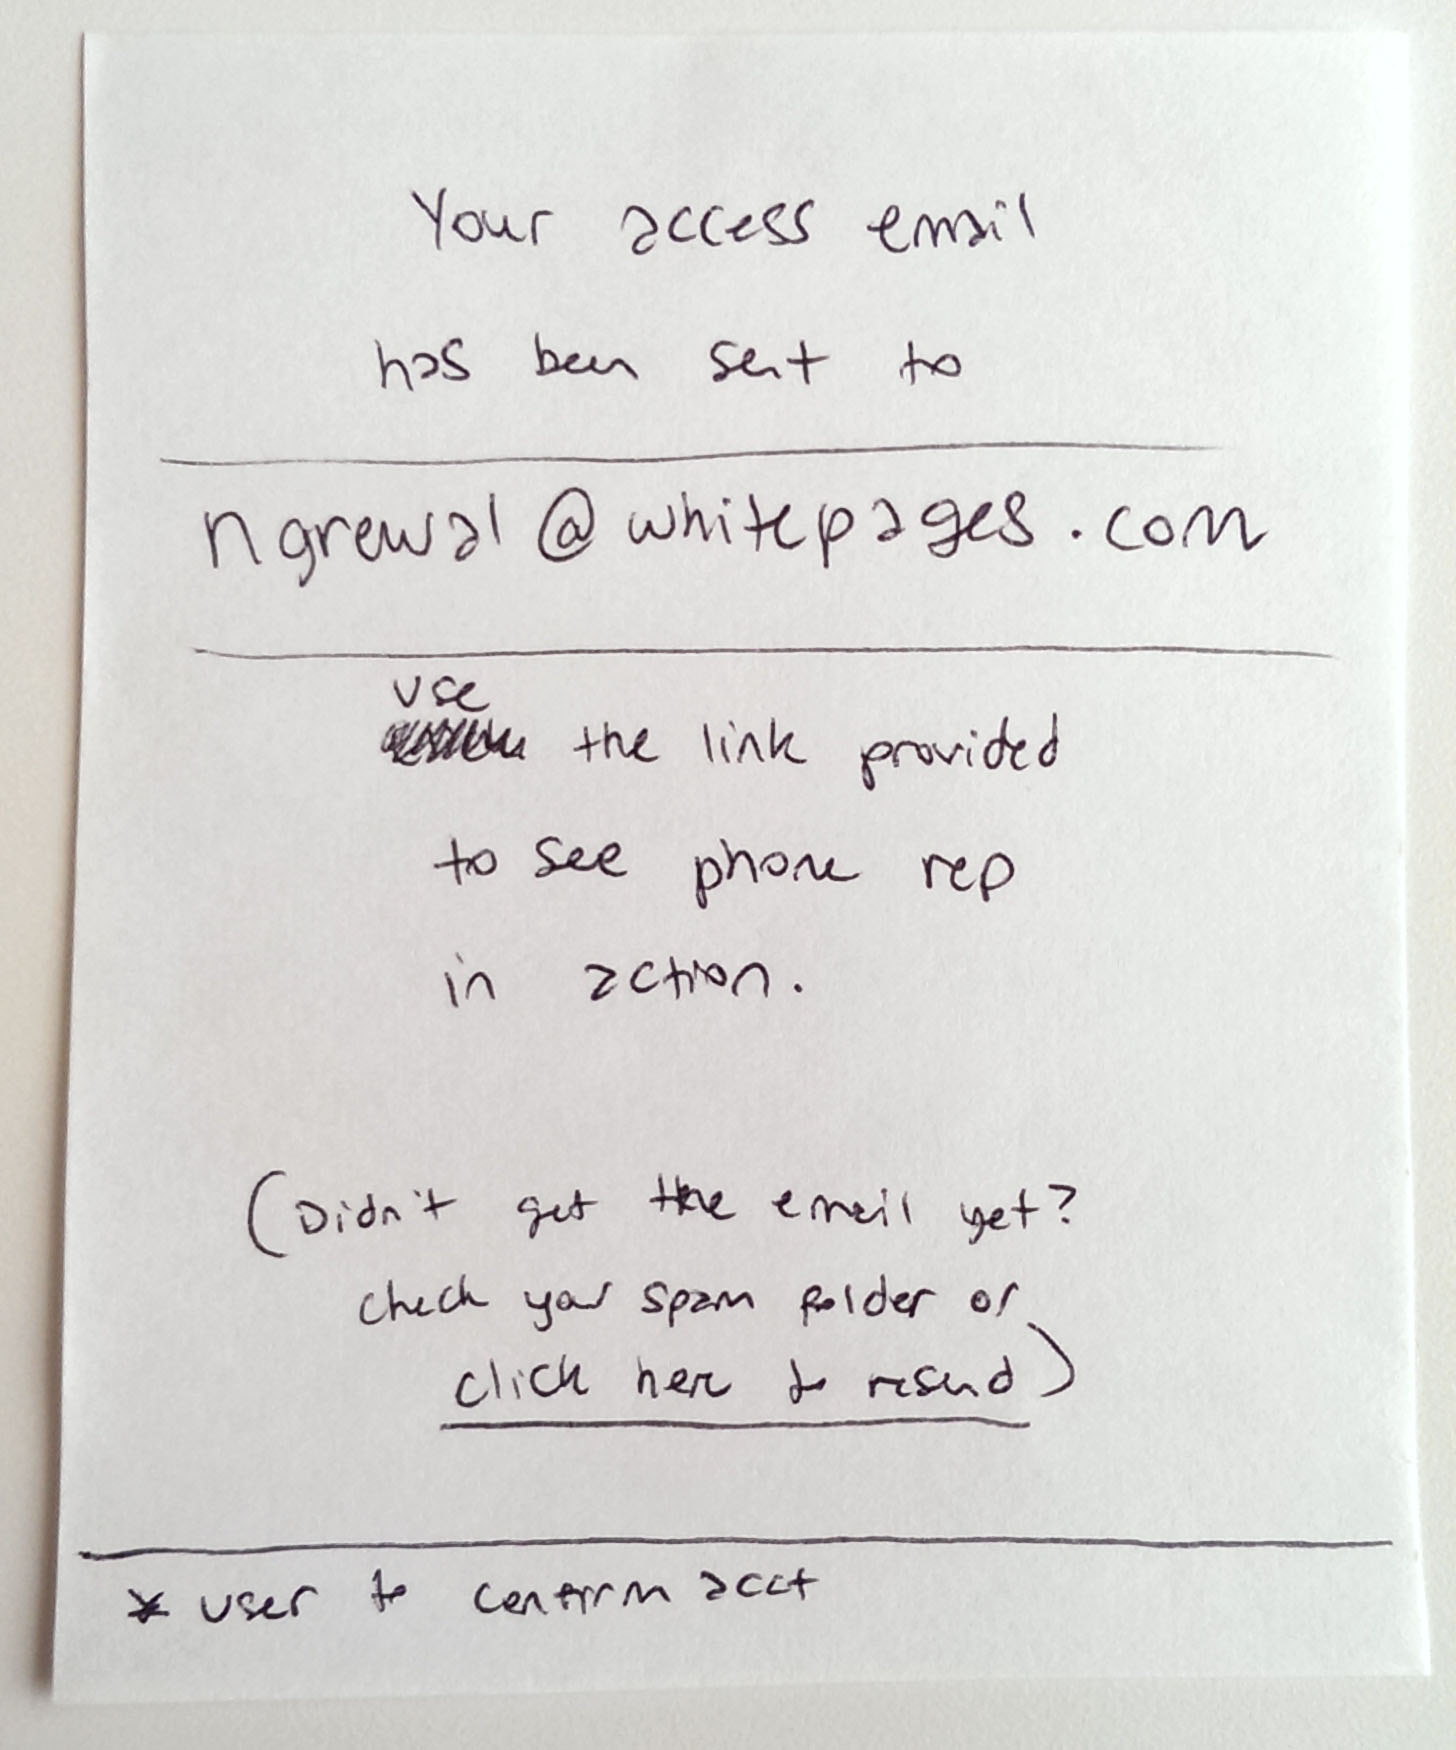 Your access email
has been sent to
ngrewal@whitepages.com
use
the link provided
to see phone rep
in action.
(Didn't get the email yet?
check your spam folder or
click here to resend)
* user to confirm acct